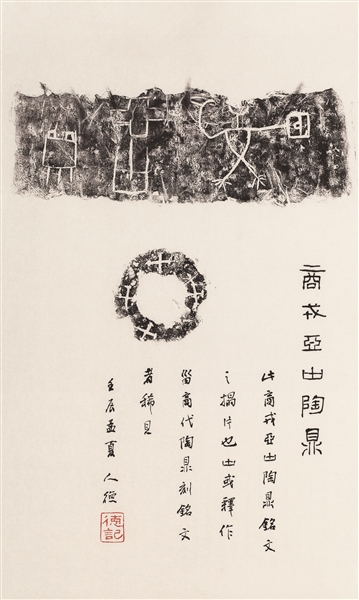 商戎亞陶鼎
此商戎亞陶鼎銘文
之搨片也或釋作
甾商代陶鼎刻銘文
者稀見
壬辰孟夏 人德
德記